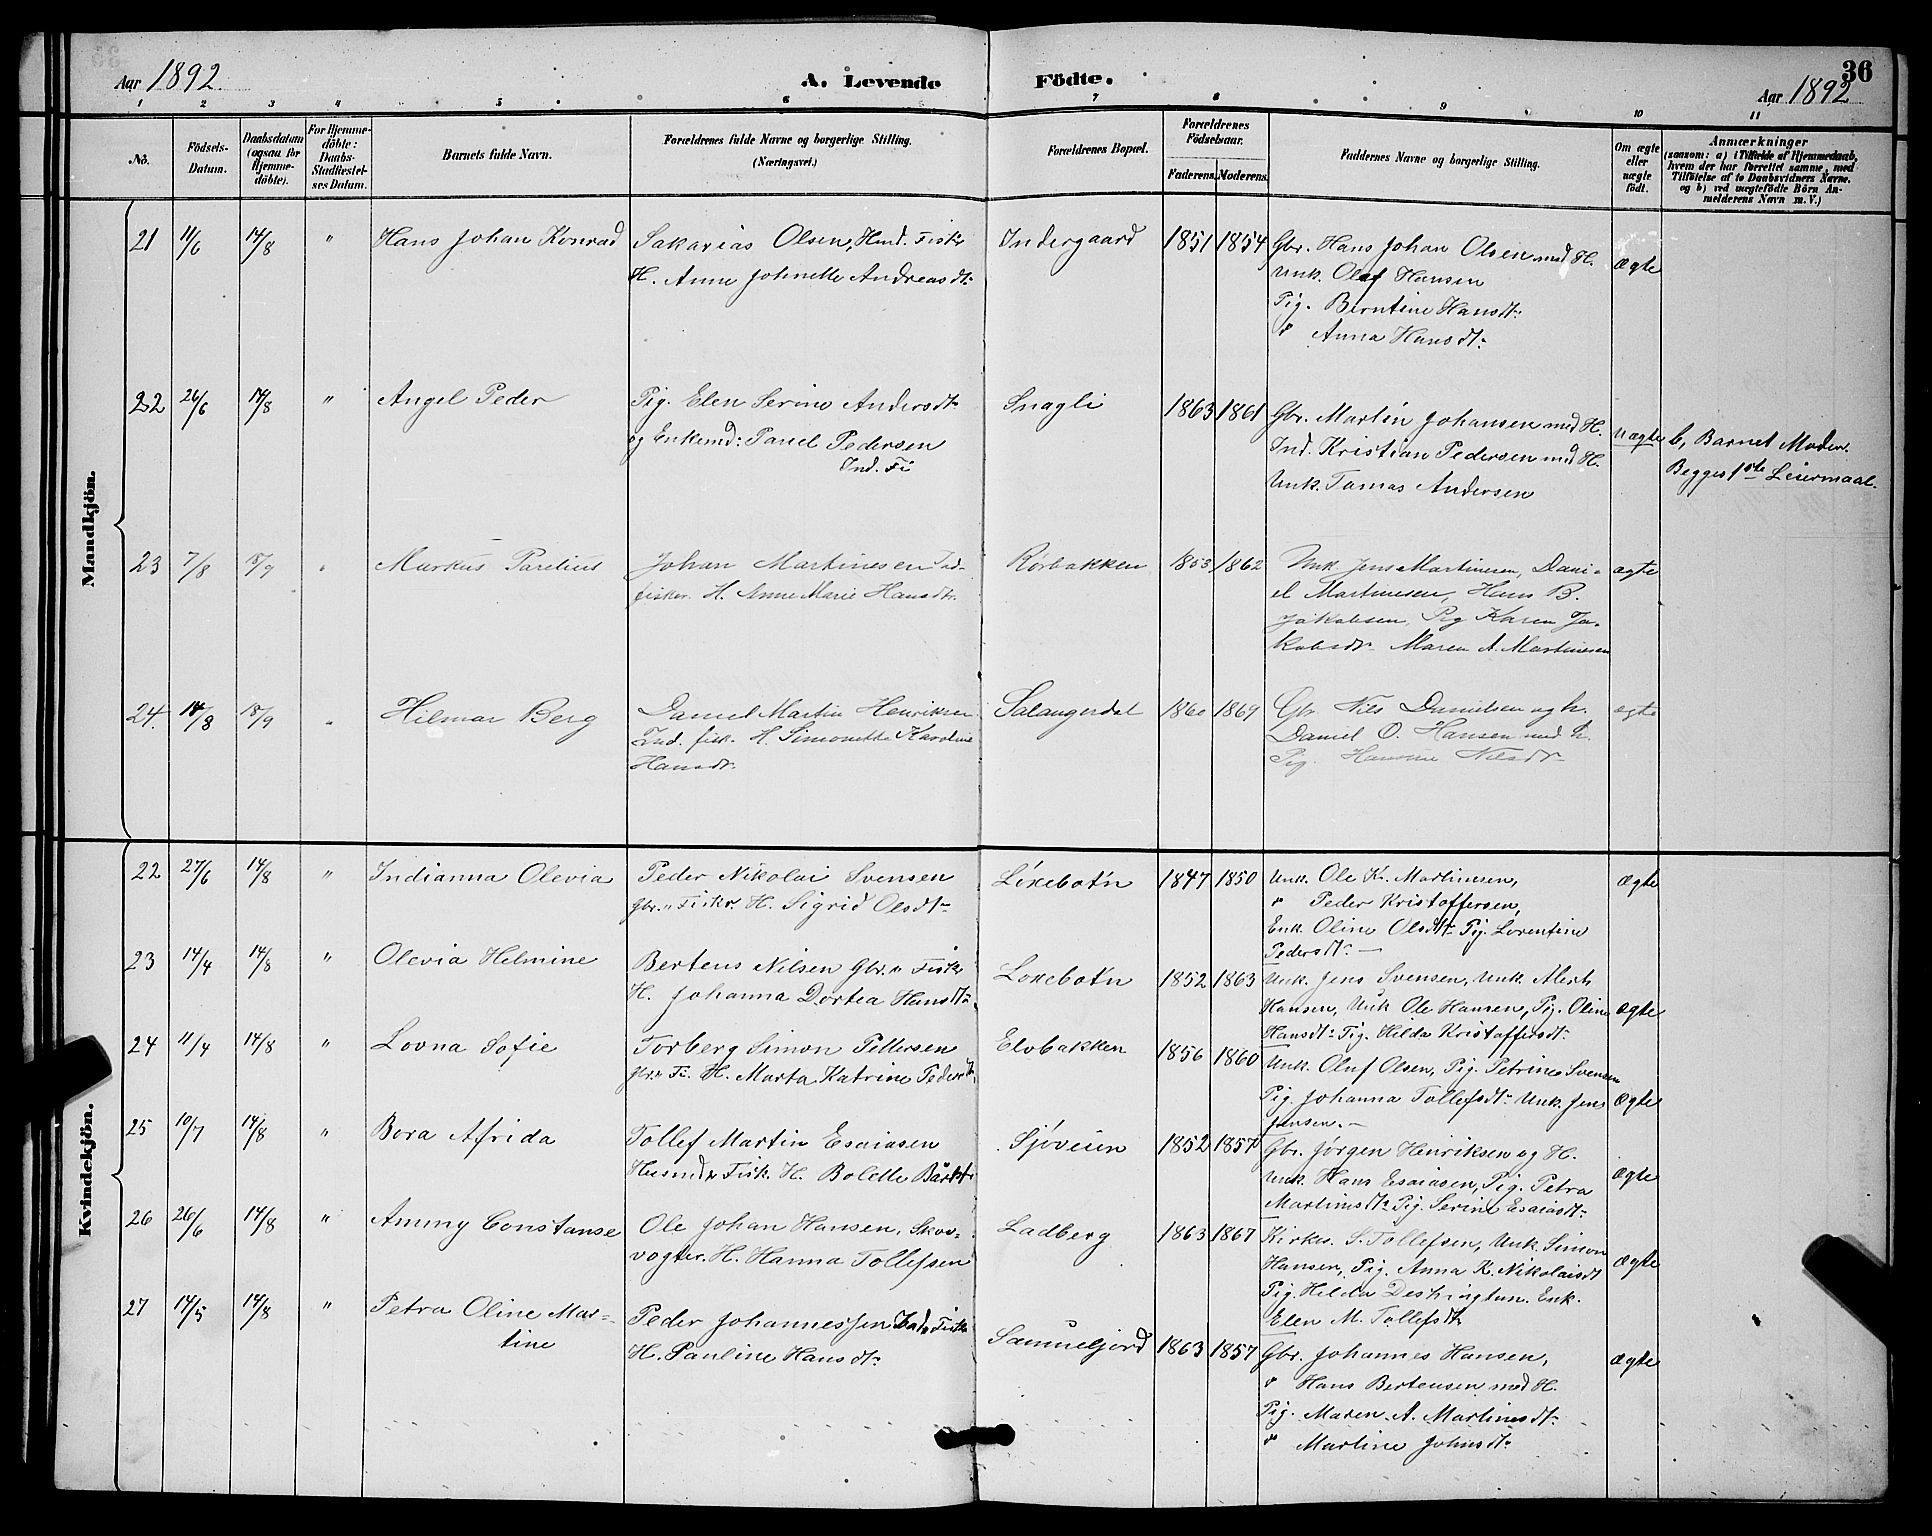 36
Aar 1892.
A. Levende Födte.
Aar 1892
1 2 3 4 5 6 7 8 9 10 11
No.
Födsels-Datum.
Daabsdatum (ogsaa for Hjemme-döbte).
For Hjemme-döbte: Daabs-Stadfæstel-ses Datum.
Barnets fulde Navn.
Forældrenes fulde Navne og borgerlige Stilling.
(Næringsvei.)
Forældrenes Bopæl.
Forældrenes Födselsaar.
Faderens. Moderens.
Faddernes Navne og borgerlige Stilling.
Om ægte eller uægte födt.
Anmærkninger
(saasom: a) i Tilfælde af Hjemmedaab, hvem der har forrettet samme, med Tilföielse af to Daabsvidners Navne, og b) ved uægtefödte Börn Anmelderens Navn m. V.)
Mandkjön.
21 11/6 14/8 " Hans Johan Konrad
Sakarias Olsen, Hmd. Fisker
H. Anne Johnette Andreasdt:
Indergaard 1851 1854
Gbr. Hans Johan Olsen med H.
Unk. Olaf Hansen
Pig. Berntine Hansdt:
" Anna Hansdt:
ægte
22 26/6 14/8 " Angel Peder
Pig. Elen Serine Andersdt:
og Enkemd: Paul Pedersen
Ind. Fi
Snagli 1863 1861
Gbr. Martin Johansen med H.
Ind. Kristian Pedersen med H.
Unk. Tomas Andersen
uægte
b, Barnet Moder.
Begges 1ste Leiermaal.
23 7/8 18/9 " Markus Parelius
Johan Martinesen Ind-
fisker H. Anne Marie Hansdtr.
Rørbakken 1853 1862
Unk Jens Martinesen, Dani-
el Martinesen, Hans B.
Jakobsen, Pig Karen Ja-
kobsdtr Maren A. Martinesen
ægte
24. 14/8 18/9 " Hilmar Berg
Daniel Martin Henriksen
Ind. fisk. H. Simonette Karoline
Hansdr.
Salangerdal 1860 1869
Gbr. Nils Danielsen og h.
Daniel O. Hansen med h.
Pig. Hansine Nilsdr
ægte
Kvindekjön.
22 27/6 14/8 " Indianna Olevia
Peder Nikolai Svensen
Gbr. " Fiskr. H. Sigrid Olsdt:
Löxebotn 1847 1850
Unk. Ole K. Martinesen,
" Peder Kristoffersen,
Enk. Oline Olsdt: Pig. Lorentine
Pedersdt: —
ægte
23 14/4 14/8 " Olevia Helmine
Bertens Nilsen Gbr. " Fisk
H. Johanna Dortea Hansdt:
Löxebotn 1852 1863
Unk. Jens Svensen, Unk. Albert
Hansen, Unk Ole Hansen, Pig. Oline
Hansdt: Pig. Hilda Kristoffersdt:
ægte
24 11/4 14/8 " Lovna Sofie
Torberg Simon Pettersen
Gbr. " Fi. H. Marta Katrine Pedersdt
Elvbakken 1856 1860
Unk. Oluf Olsen, Pig. Petrine Svensen
Pig. Johanna Tollefsdt: Unk. Jens
Jensen. —
ægte
25 10/7 14/8 " Bora Afrida
Tollef Martin Esaiasen
Husmd " Fisk. H. Bolette
Sjøveien 1852 1857
Gbr. Jørgen Henriksen og H.
Unk. Hans Esaiasen, Pig. Petra
Martinsdt: Pig. Serine Esaiasdt:
ægte
26 26/6 14/8 " Ammy Constanse
Ole Johan Hansen, Skov-
vogter. H. Hanna Tollefsen
Ladberg 1863 1867
Kirkes. S. Tollefsen, Unk. Simon
Hansen, Pig. Anna K. Nikolaisdt
Pig. Hilda Deshington. Enk.
Elen M. Tollefsdt
ægte
27 14/5 14/8 " Petra Oline Mar-
tine
Peder Johannessen Ind. Fisk
H. Pauline Hansdt:
Samueljord 1863 1857
Gbr. Johannes Hansen,
" Hans Bertensen med H.
Pig. Maren A. Martinesdt:
" Martine Johnsdt:
ægte